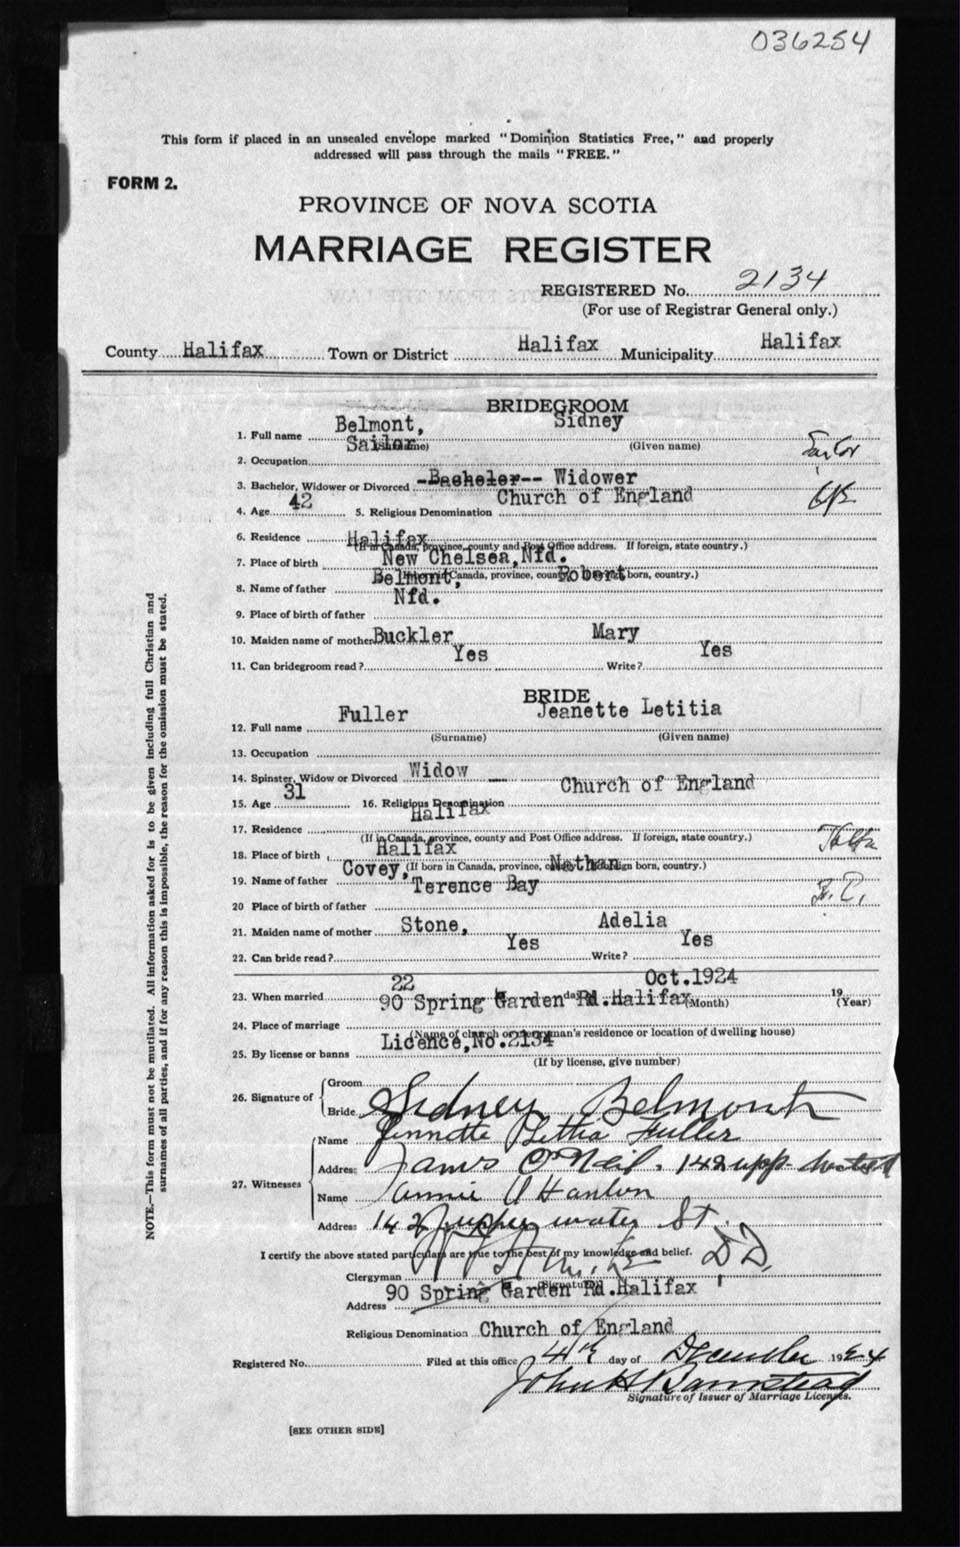 036254
This form if placed in an unsealed envelope marked "Dominion Statistics Free," and properly
addressed will pass through the mails "FREE."
FORM 2.
PROVINCE OF NOVA SCOTIA
MARRIAGE REGISTER
REGISTERED No. 2134
(For use of Registrar General only.)
County Halifax Town or District Halifax Municipality Halifax
BRIDEGROOM
1. Full name Belmont, Sidney
(Surname) (Given name)
2. Occupation Sailor Sailor
3. Bachelor, Widower or Divorced -Bachelor-- Widower
4. Age 42 5. Religious Denomination Church of England
6. Residence Halifax
(If in Canada, province, county and Post Office address. If foreign, state country.)
7. Place of birth New Chelsea, Nfd.
8. Name of father Belmont, Robert
9. Place of birth of father Nfd.
10. Maiden name of mother Buckler Mary
11. Can bridegroom read? Yes Write? Yes
BRIDE
12. Full name Fuller Jeanette Letitia
(Surname) (Given name)
13. Occupation
14. Spinster, Widow or Divorced Widow
15. Age 31 16. Religious Denomination Church of England
17. Residence Halifax
(If in Canada, province, county and Post Office address. If foreign, state country.)
18. Place of birth Halifax
(If born in Canada, province, country.)
19. Name of father Covey, Nathan
20 Place of birth of father Terence Bay
21. Maiden name of mother Stone, Adelia
22. Can bride read? Yes Write? Yes
23. When married 22 Oct.1924 19
(Month) (Year)
24. Place of marriage 90 Spring Garden Rd.Halifax
(Name of church or clergyman's residence or location of dwelling house)
25. By license or banns Licence,No.2134
(If by license, give number)
26. Signature of Groom Sidney Belmont
Bride Fuller
27. Witnesses Name James O'Neil
Address 142 upp
Name Annie O Hanlon
Address 142 upper water St.
I certify the above stated particulars are true to the best of my knowledge and belief.
Clergyman D D.
(Signature)
Address 90 Spring Garden Rd.Halifax
Religious Denomination Church of England
Registered No. Filed at this office 4th day of December 1924
John H Barnstead
Signature of Issuer of Marriage Licenses.
[SEE OTHER SIDE]
NOTE.—This form must not be mutilated. All information asked for is to be given including full Christian and
surnames of all parties, and if for any reason this is impossible, the reason for the omission must be stated.